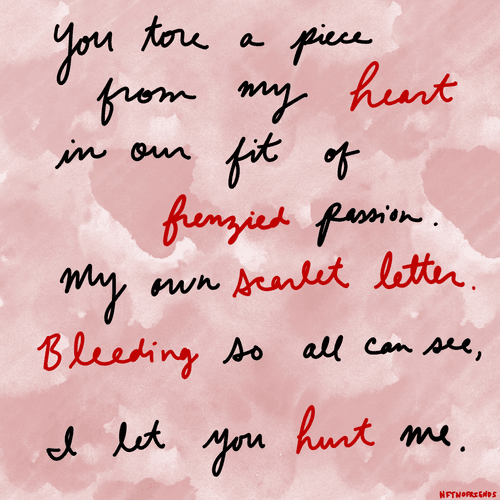 You tore a piece
from my heart
in our fit of
frenzied passion.
My own scarlet letter.
Bleeding so all can see,
I let you hurt me.
NFTNOFRIENDS